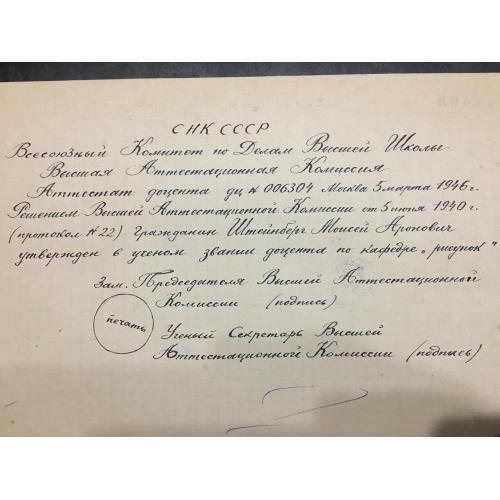 СНК СССР
Всесоюзный Комитет по Делам Высшей Школы
Высшая Аттестационная Комиссия
Аттестат доцента дц № 006304 Москва 5 марта 1946 г.
Решением Высшей Аттестационной Комиссии от 5 июня 1940 г.
(протокол № 22) Гражданин Штейнберг Моисей Аронович
утвержден в ученом звании доцента по кафедре „рисунок"
Зам. Председателя Высшей Аттестационной
Комиссии (подпись)
печать
Ученый Секретарь Высшей
Аттестационной Комиссии (подпысь)